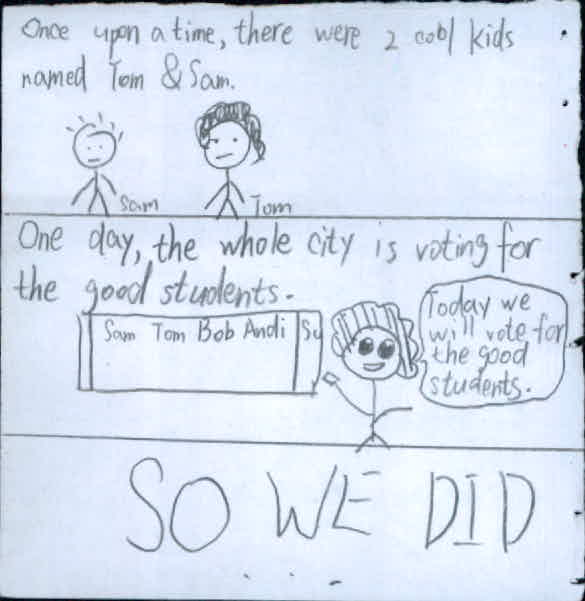 Once upon a time, there were 2 cool kids
named Tom & Sam.
Sam
Tom
One day, the whole city is voting for
the good students.
Sam Tom Bob Andi Su
Today we
will vote for
the good
students.
SO WE DID